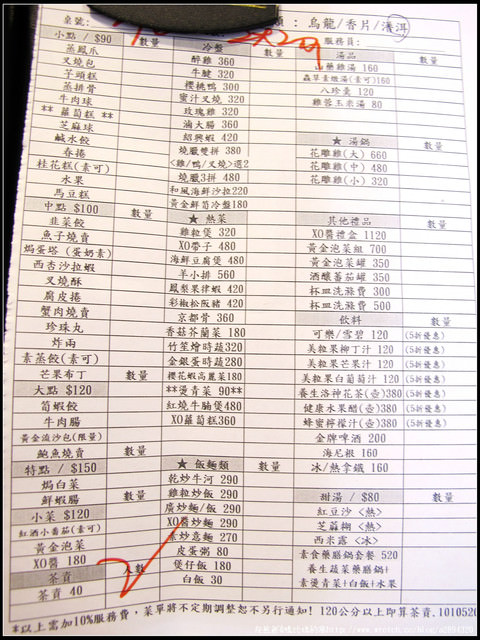 桌號:
類: 烏龍/香片/潽洱
服務員:
小點 / $90 數量
蒸鳳爪
叉燒包
芋頭糕
蒸排骨
牛肉球
** 蘿蔔糕 **
芝麻球
鹹水餃
春捲
桂花糕(素可)
水果
馬豆糕
中點 $100 數量
韭菜餃
魚子燒賣
焗蛋塔 (蛋奶素)
西杏沙拉蝦
叉燒酥
腐皮捲
蟹肉燒賣
珍珠丸
炸兩
素蒸餃(素可)
芒果布丁
大點 $120 數量
筍蝦餃
牛肉腸
黃金流沙包(限量)
鮑魚燒賣
特點 / $150 數量
焗白菜
鮮蝦腸
小菜 $120 數量
紅酒小番茄(素可)
黃金泡菜
XO醬 180
茶資 人數
茶資 40
冷盤 數量
醉雞 360
牛腱 320
櫻桃鴨 300
蜜汁叉燒 320
玫瑰雞 320
滷大腸 360
紹興蝦 420
燒臘雙拼 380
<雞/鴨/叉燒>選2
燒臘3拼 480
和風海鮮沙拉220
黃金鮮筍冷盤180
★ 熱菜 數量
雞粒煲 320
XO帶子 480
海鮮豆腐煲 480
羊小排 560
鳳梨果律蝦 420
彩椒松阪豬 420
京都骨 360
香菇芥蘭菜 180
竹笙燴時蔬320
金銀蛋時蔬280
櫻花蝦高麗菜180
**燙青菜 90**
紅燒牛腩煲480
XO蘿蔔糕360
★ 飯麵類 數量
乾炒牛河 290
雞粒炒飯 290
廣炒麵/飯 290
XO醬炒麵 290
素炒意麵 270
皮蛋粥 80
煲仔飯 180
白飯 30
湯品 數量
山藥雞湯 160
蟲草素燉湯(素可)160
八珍羹 120
雞蓉玉米湯 80
★ 湯鍋 數量
花雕雞(大) 660
花雕雞(中) 480
花雕雞(小) 320
其他禮品 數量
XO醬禮盒 1120
黃金泡菜組 700
黃金泡菜罐 350
酒釀蕃茄罐 350
杯皿洗滌費 300
杯皿洗滌費 500
飲料 數量
可樂/雪碧 120 (5折優惠)
美粒果柳丁汁 120 (5折優惠)
美粒果芒果汁 120 (5折優惠)
美粒果白葡萄汁 120 (5折優惠)
養生洛神花茶(壺)380 (5折優惠)
健康水果醋(壺)380 (5折優惠)
蜂蜜檸檬汁(壺)380 (5折優惠)
金牌啤酒 200
海尼根 160
冰/熱拿鐵 160
甜湯 / $80 數量
紅豆沙 <熱>
芝蔴糊 <熱>
西米露 <冰>
素食藥膳鍋套餐 520
養生蔬菜藥膳鍋+
素燙青菜+白飯+水果
*以上需加10%服務費，菜單將不定期調整恕不另行通知! 120公分以上即算茶資.1010520